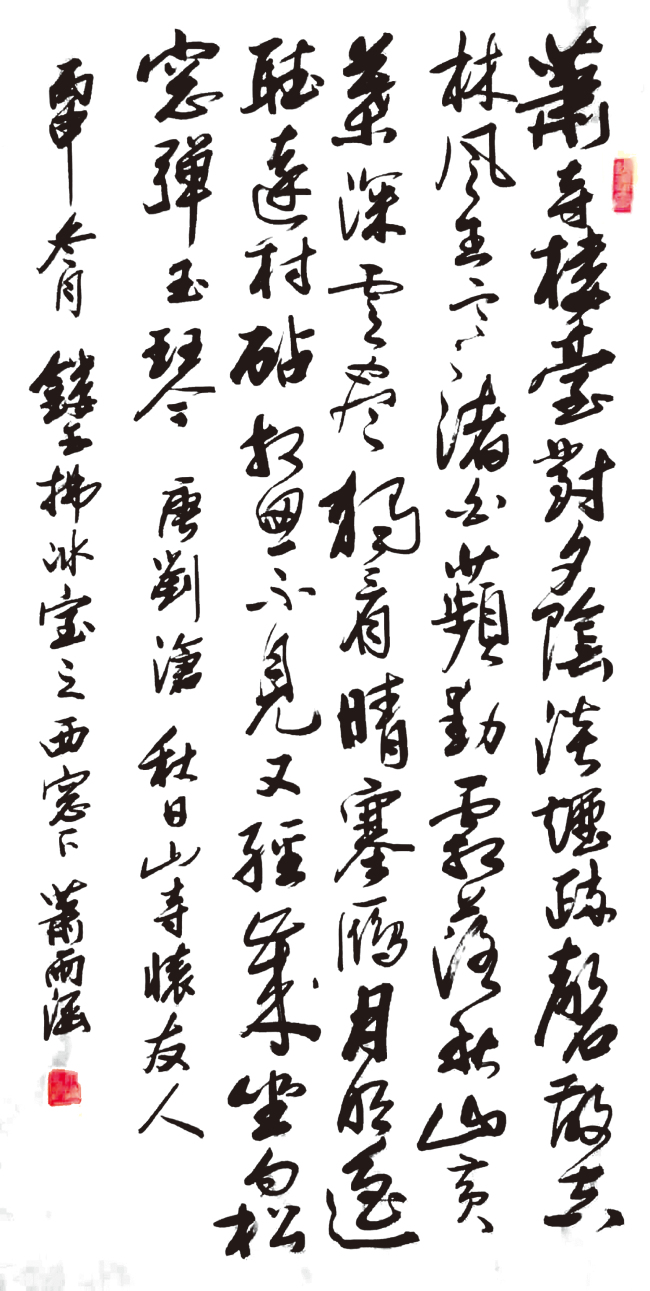 蕭寺樓臺對夕陰淡煙疎磬散空
林風生寒渚白蘋動霜落秋山黄
葉深雲尽獨看晴塞鴈月明遥
聽遠村砧相思不見又經歲坐向松
窓彈玉琴 唐劉滄 秋日山寺懷友人
丙申冬月 鏤玉拂冰室之西窓下 蕭雨涵